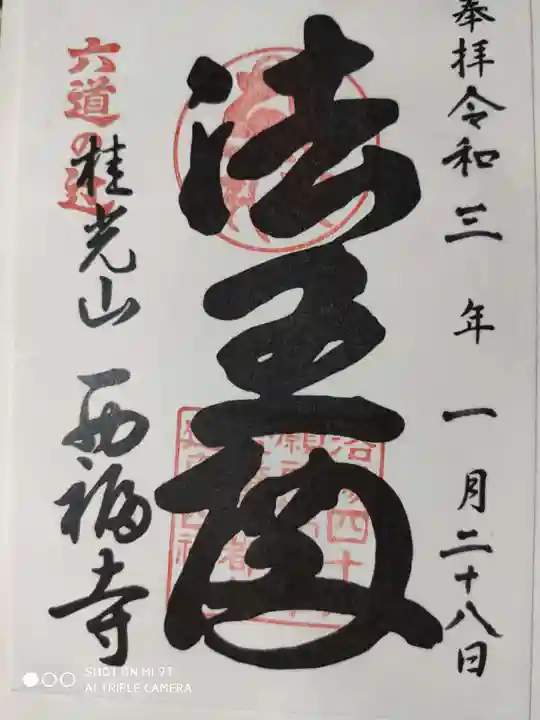 奉拝令和三年一月二十八日
法王
六道の辻
桂光山 西福寺
洛陽四十
SHOT ON MI 9T
AI TRIPLE CAMERA